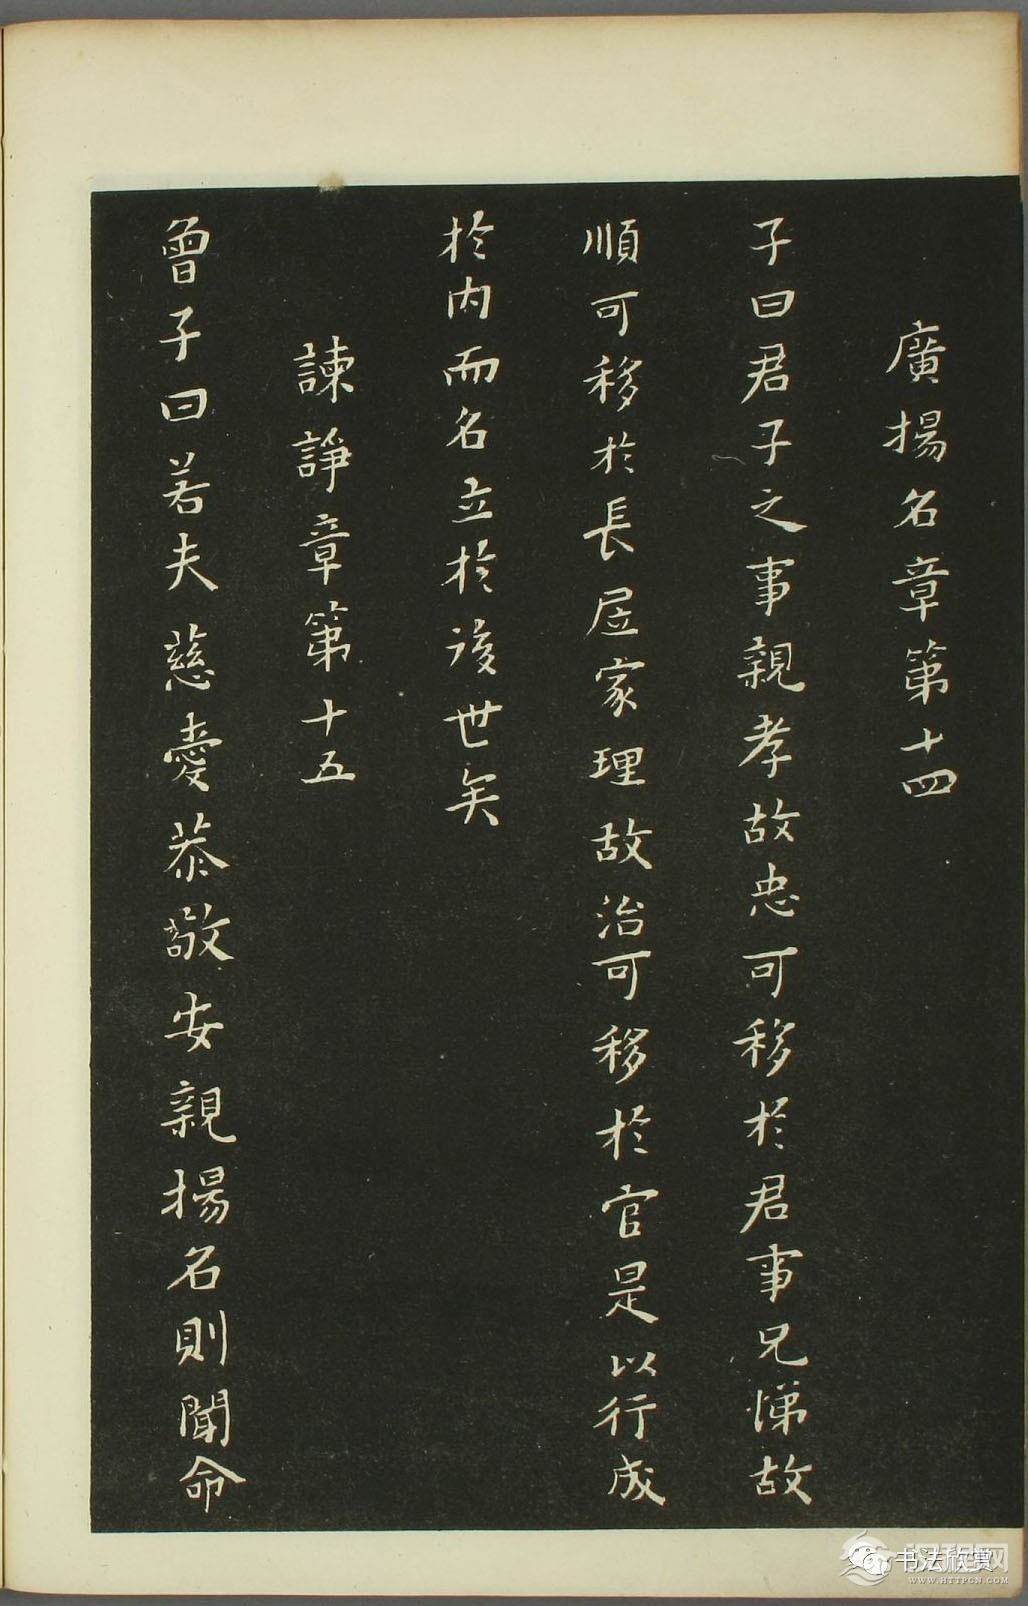 廣揚名章第十四
子曰君子之事親孝故忠可移於君事兄悌故
順可移於長居家理故治可移於官是以行成
於内而名立於後世矣
諫諍章第十五
曾子曰若夫慈愛恭敬安親揚名則聞命
书法欣赏
WWW.HTTPCN.COM